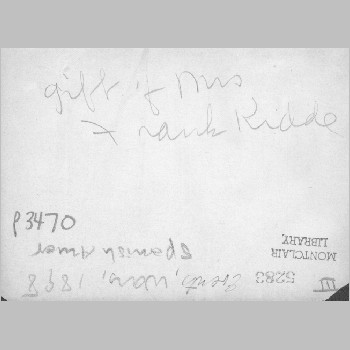 gift of Mrs
Frank Kidde
P3470
Spanish Amer
Events, War, 1898
III
5283
MONTCLAIR
LIBRARY